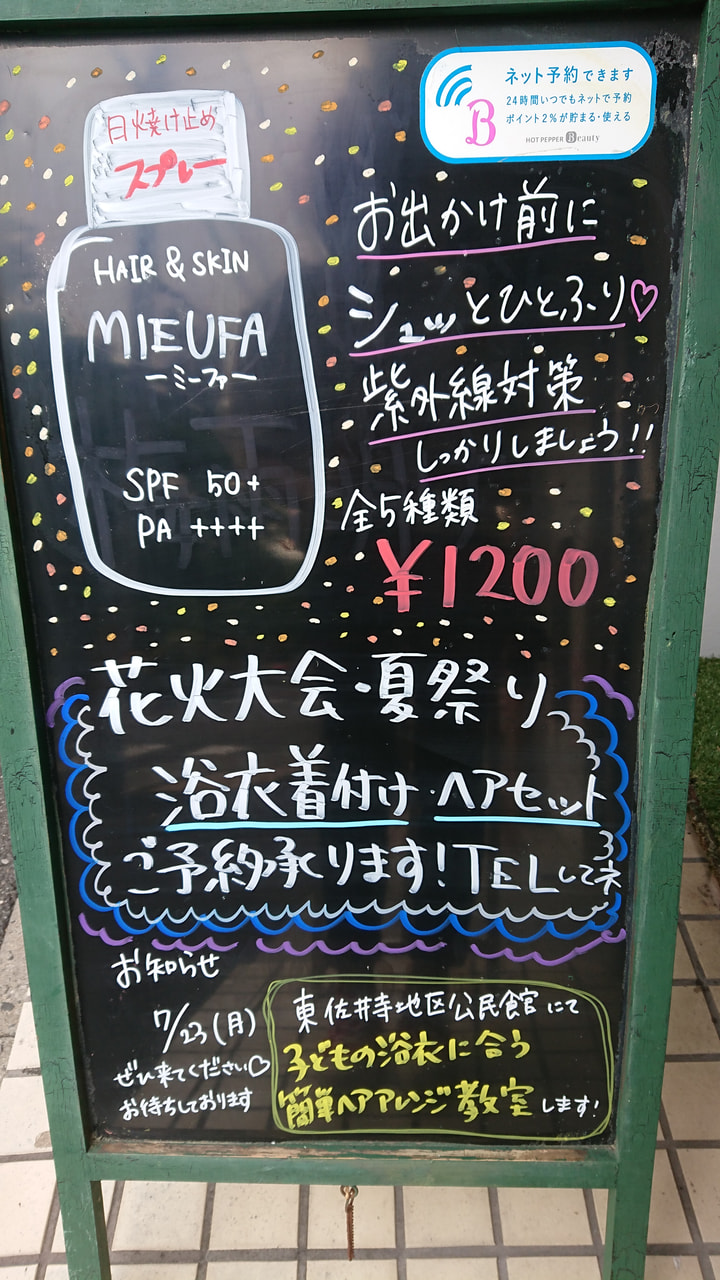 ネット予約できます
24時間いつでもネットで予約
ポイント2%が貯まる・使える
HOT PEPPER Beauty
B
日焼け止め
スプレー
HAIR & SKIN
MIEUFA
ーミーファー
SPF 50+
PA ++++
お出かけ前に
シュッとひとふり♡
紫外線対策
しっかりしましょう!!
全5種類
¥1200
花火大会・夏祭り
浴衣着付け・ヘアセット
ご予約承ります!TELしてネ
お知らせ
7/23(月)
ぜひ来てください♡
お待ちしております
東佐井寺地区公民館にて
子どもの浴衣に合う
簡単ヘアアレンジ教室します!